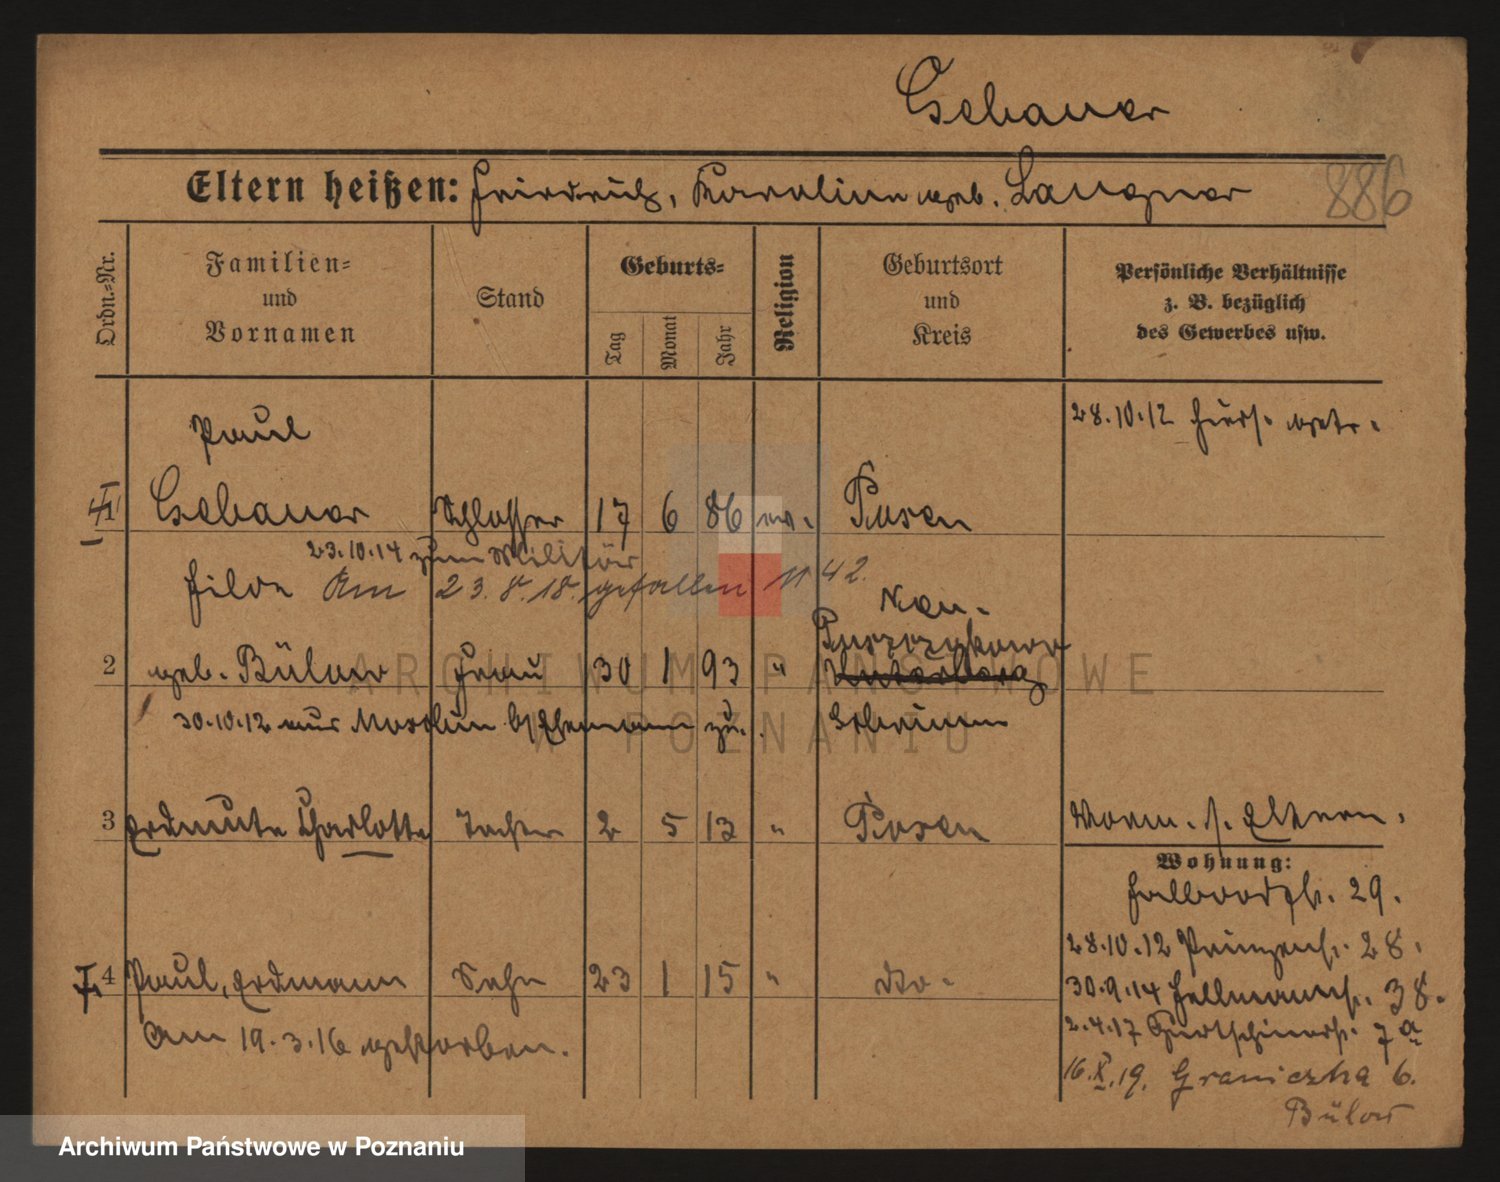 Gebauer
Eltern heißen: Friedrich, Karoline geb. Langner 886
Ordn.-Nr.
Familien- und Vornamen
Stand
Geburts-
Tag Monat Jahr
Religion
Geburtsort und Kreis
Persönliche Verhältnisse z. B. bezüglich des Gewerbes usw.
28.10.12 hiers. getr.
Paul
1 Gebauer Schlosser 17 6 86 ev. Posen
23.10.14 zum Militär
Am 23.8.18. gefallen 1142.
Neu-
2 geb. Bülow Frau 30 1 93 " Puszczykowo
Unterberg
30.10.12 aus z. Ehemann zu. Schrimm
3 Erdmute Charlotte Tochter 2 5 13 " Posen Worm. s. Eltern.
Wohnung:
29.
28.10.12 Prinzenstr. 28.
4 Paul, Erdmann Sohn 23 1 15 " dto.
30.9.14 Hellmannstr. 38.
Am 19.3.16 gestorben.
2.4.17 7a
16.X.19. Graniczna 6.
Bülow
ARCHIWUM PAŃSTWOWE
W POZNANIU
Archiwum Państwowe w Poznaniu